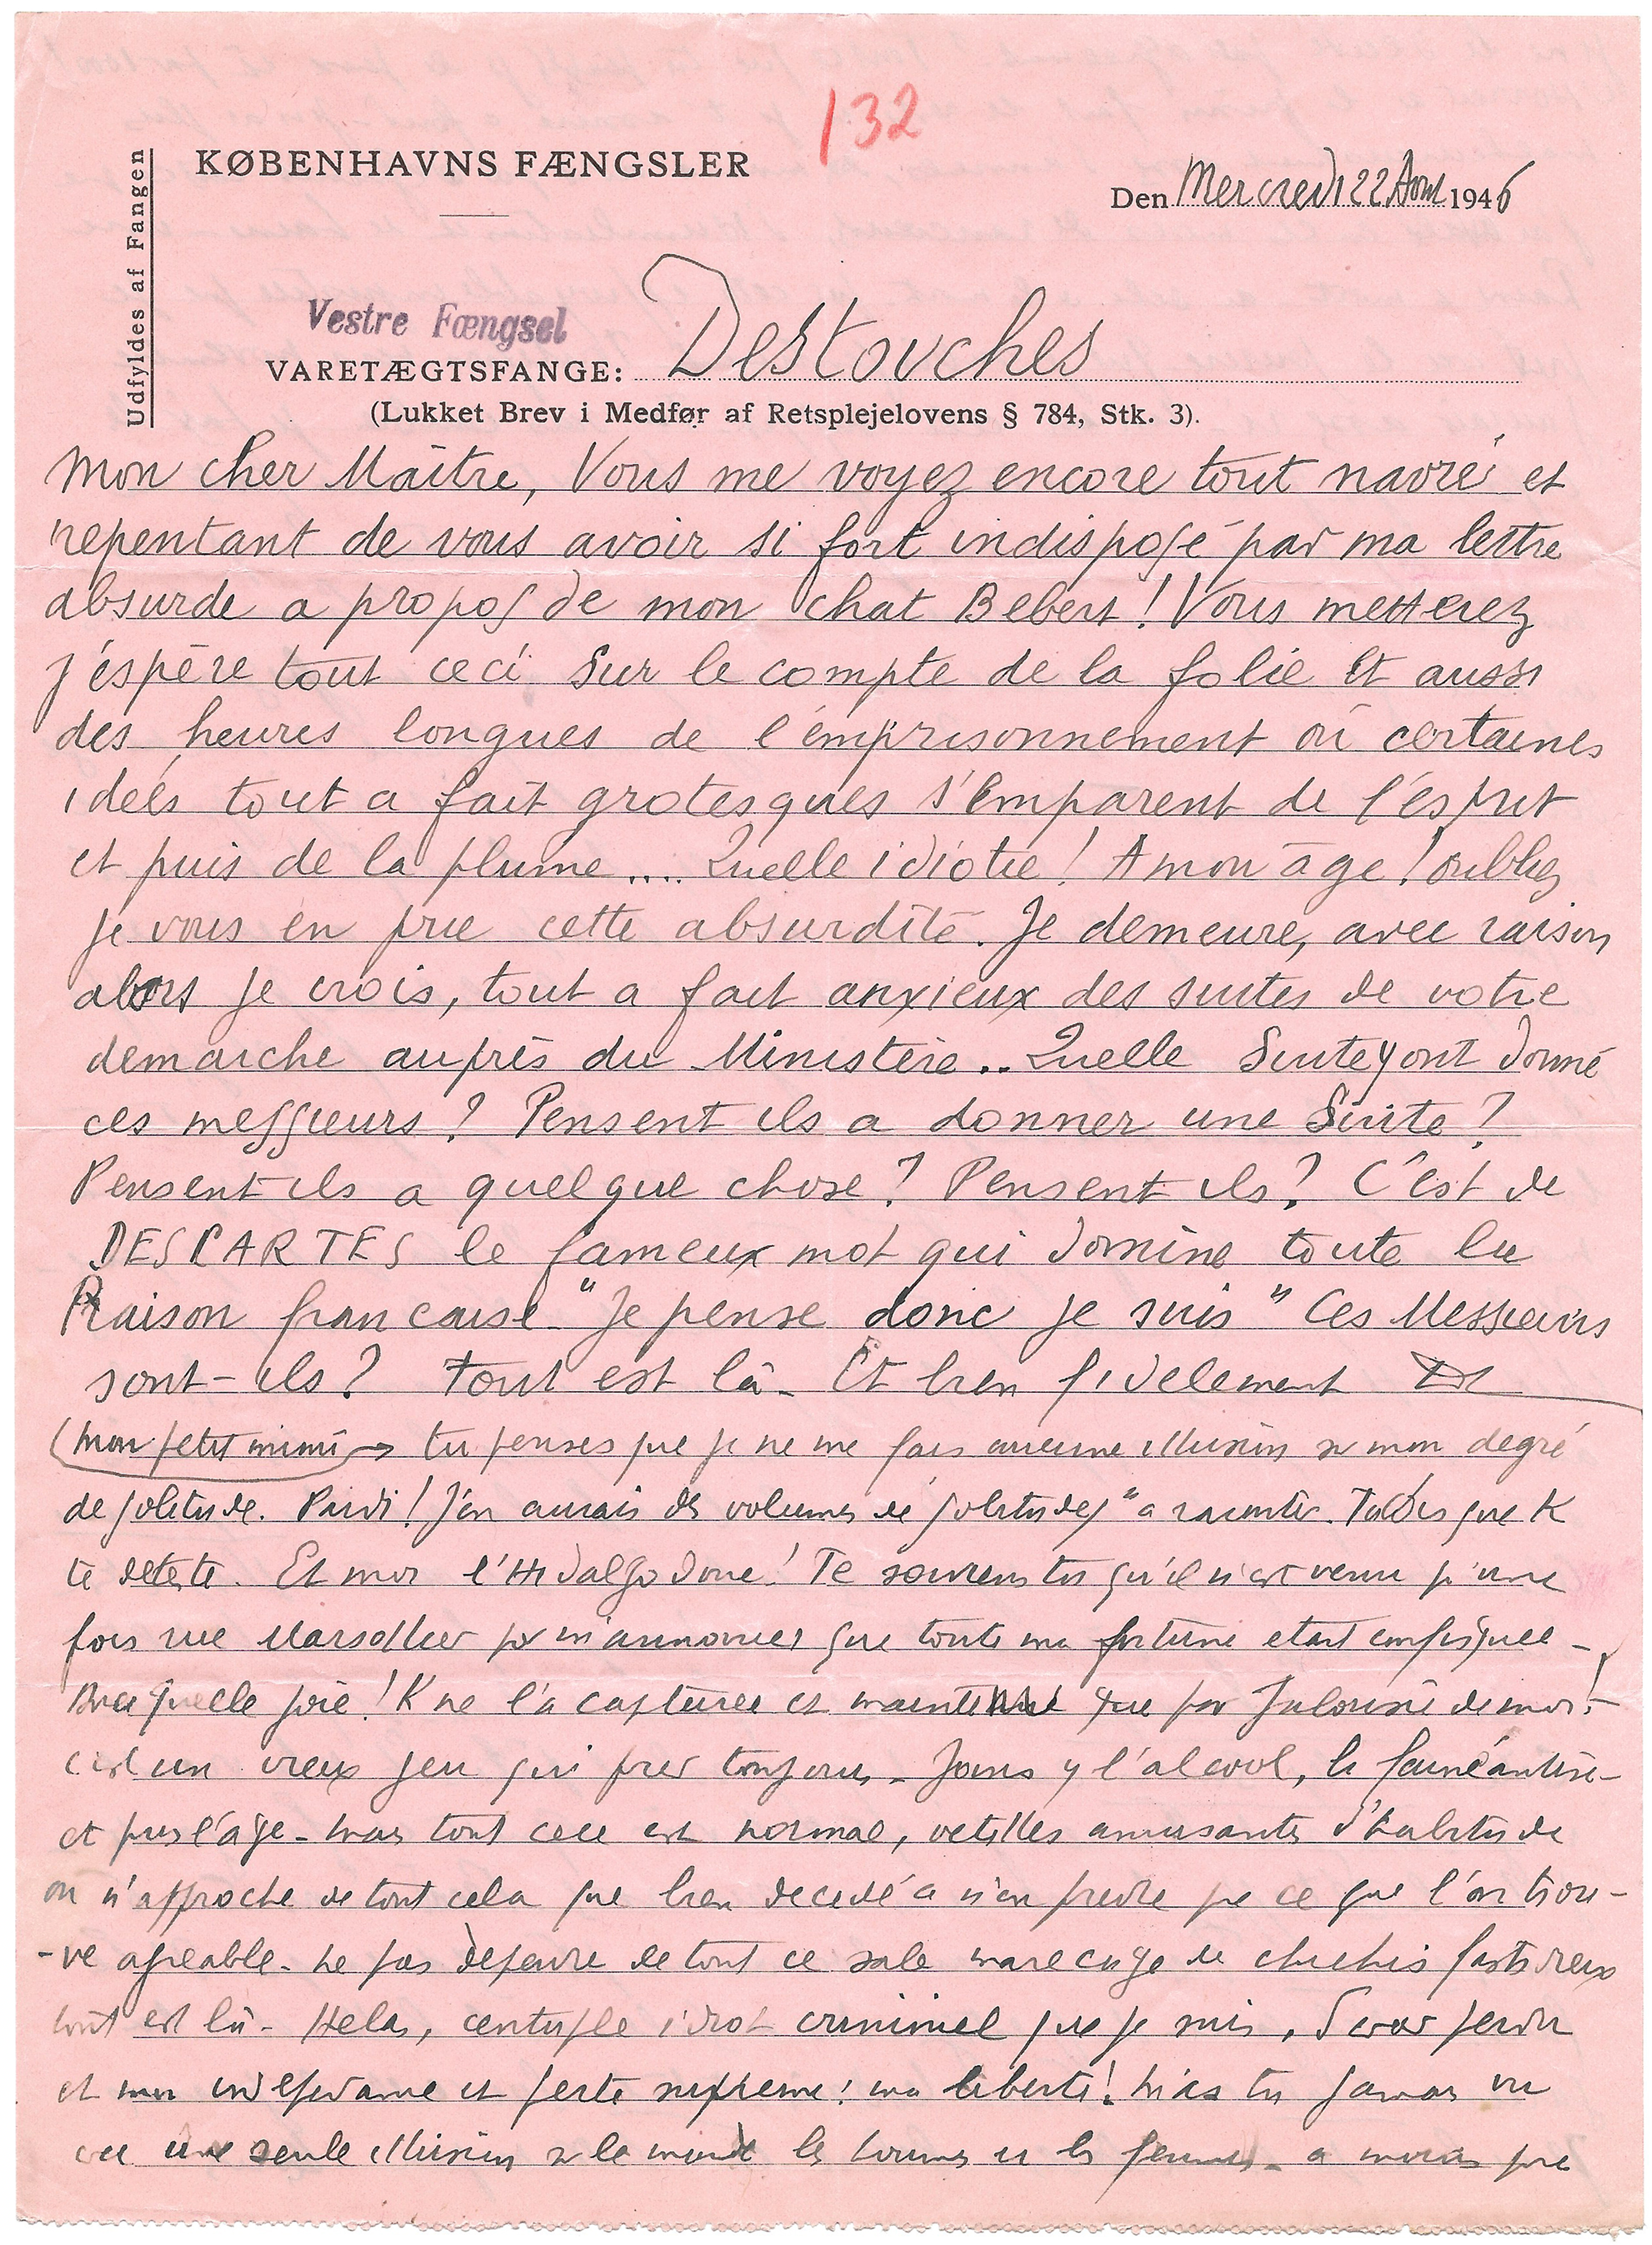 132
KØBENHAVNS FÆNGSLER
Udfyldes af Fangen
Den Mercredi 22 Aout 1946
Vestre Fængsel
VARETÆGTSFANGE: Destouches
(Lukket Brev i Medfør af Retsplejelovens § 784, Stk. 3).
Mon cher Maître, Vous me voyez encore tout navré et
repentant de vous avoir si fort indisposé par ma lettre
absurde a propos de mon chat Bebert! Vous metterez
j'éspère tout ceci sur le compte de la folie et aussi
des heures longues de l'emprisonnement où certaines
idées tout a fait grotesques s'emparent de l'esprit
et puis de la plume.... Quelle idiotie! A mon âge! oubliez
je vous en prie cette absurdité. Je demeure, avec raison
alors je crois, tout a fait anxieux des suites de votre
demarche auprès du Ministère.. Quelle suite y ont donné
ces messieurs? Pensent ils a donner une Suite?
Pensent ils a quelque chose? Pensent ils? C'est de
DESCARTES le fameux mot qui domine toute la
Raison francaise "Je pense donc je suis" Ces Messieurs
sont-ils? Tout est là- Et bien fidelement
(mon petit mimi → tu penses que je ne me fais aucune illusion sur mon degré
de solitude. Pardi! J'en aurais des volumes de solitudes" a raconter. Tu dis que K
te deteste. Et moi l'Hidalgo donc! Te souviens tu qu'il n'est venu qu'une
fois rue Marsollier pr m'annoncer que toute ma fortune etait confisquee -
Avec quelle joie! K ne l'a capturee et maintenue que par Jalousie de moi! -
c'est un vieux jeu qui prend toujours - Joins y l'alcool, la faineantise -
et puis l'âge - mais tout cela est normal, vetilles amusantes d'habitude
on n'approche de tout cela que bien decidé a n'en prendre que ce que l'on trou-
-ve agreable - ne pas dépendre de tout ce sale marecage de chichis fastidieux
tout est là - Helas, centuple idiot criminel que je suis, d'avoir perdu
et mon independance et perte supreme: ma liberté! M'as tu jamais vu
une seule illusion sur le monde les hommes et les femmes - a moins que